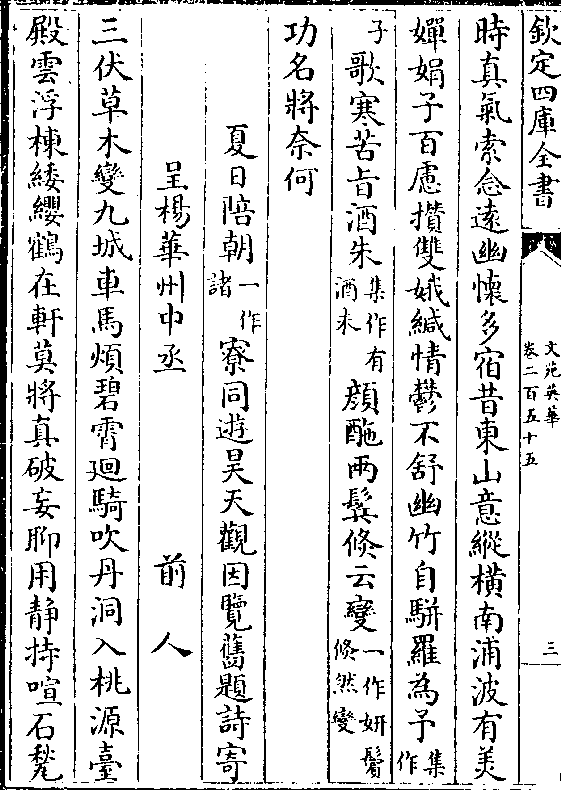 欽定四庫全書
文苑英華
卷二百五十五
三
時真氣索念遠幽懷多宿昔東山意縱橫南浦波有美
嬋娟子百慮攢雙娥緘情鬱不舒幽竹自駢羅為予集作
子歌寒苦旨酒朱集作有酒未顔酡兩鬂倐云變一作妍鬢倐然變
功名將奈何
夏日陪朝一作諸寮同遊昊天觀因覽舊題詩寄
呈楊華州中丞 前人
三伏草木變九城車馬煩碧霄迴騎吹丹洞入桃源臺
殿雲浮棟緌纓鶴在軒莫將真破妄聊用静持喧石甃